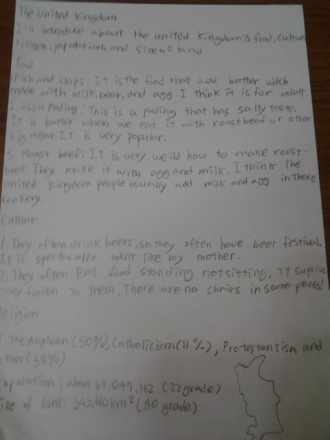 The United Kingdom
I'll introduce about the united kingdom's food, culture
religion, population, and size of land
food
Fish and chips: It is the food that add batter witch
made with milk, bear, and agg. I think it is for adult.
2. : This is a puding that has salty taste.
It is batter when we eat it with roast beef or other
big meat. It is very popular.
3. Roast beef: It is very weild how to make roast-
beef. They make it with agg and milk. I think the
united kingdom people usually add milk and agg in there
cookery.
Culture.
1. They often drink beers, so they often have beer festival.
It is adult like my mother.
2. They often eat food standing not sitting, It suprise
to them. There are no chairs in some places!
religion
1. the Anglican (50%), Catholicism (11%), Protestantism and
other (39%)
population: about 63,049,162 (22 grade)
size of land: km² (80 grade)